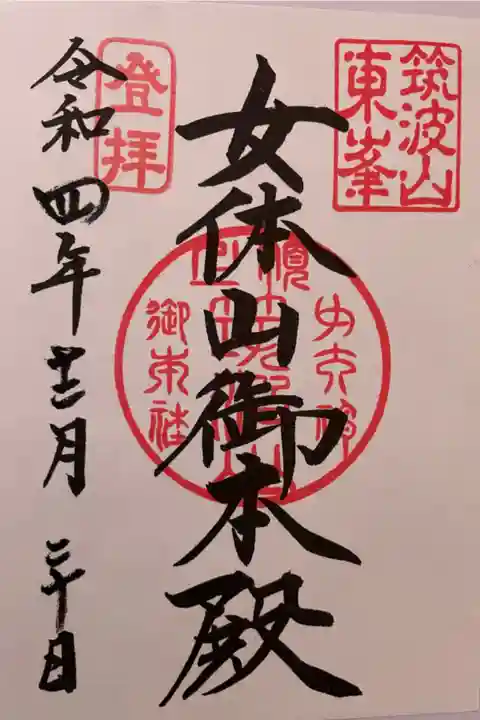 筑波山
東峯
女体山御本殿
登拝
令和四年十二月二十日
御本社